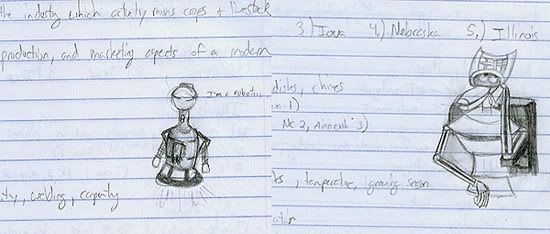 the industry which actually raises crops + livestock
production, and marketing aspects of a modern
I'm a robot
ty, welding, carpentry
3.) Iowa 4.) Nebraska 5.) Illinois
chives
1)
NC 2, Minnesota 3)
, temperature, growing season